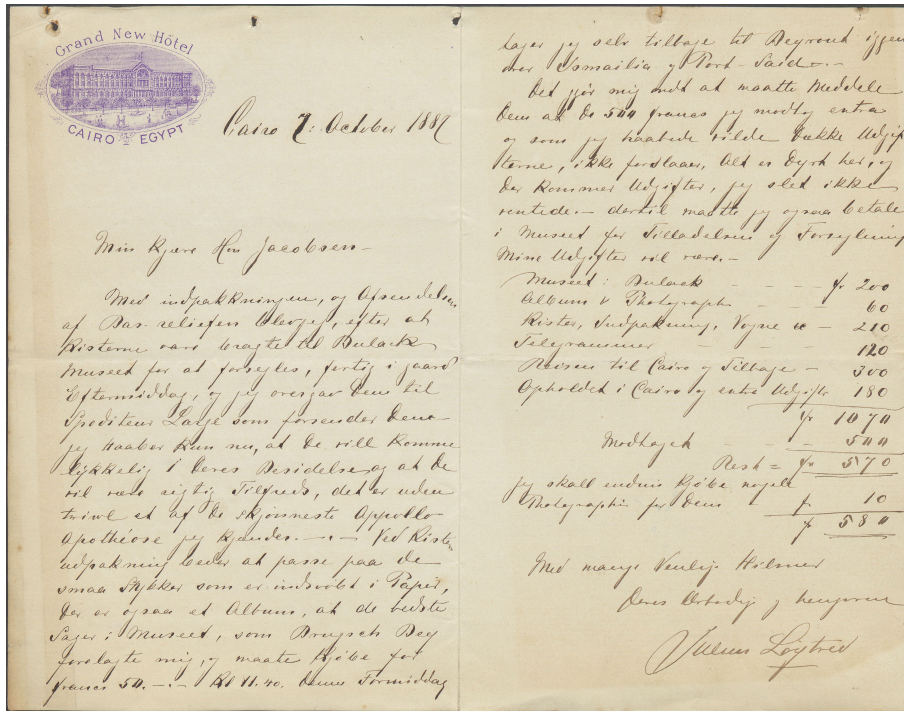 Grand New Hôtel
CAIRO EGYPT
Cairo 7: October 1887
Min kjære Herr Jacobsen –
Med indpakkningen, og Afsendelsen
af Bas-reliefen blev jeg, efter at
Kisterne vare bragte til Bulack
Museet for at forsegles, fertig i gaard
Eftermiddag, og jeg overgav dem til
Spediteur Large som forsender dem
jeg haaber kun nu, at de vill komme
lykkelig i Deres Besidelse og at De
vil være rigtig Tilfreds, det er uden
tvivl et af de skjønneste Appollo
Apothéose jeg kjender. – . – Ved Kisten
udpakning beder at passe paa de
smaa Stykker som er indsvøbt i Papir,
der er ogsaa et Album, at de bedste
Sager i Museet, som Brugsch Bey
forslagte mig, og maate kjøbe for
francs 50. – . – Kl 11.40. denne Formiddag
tager jeg selv tilbage til Beyrout iggen
over Ismailia og Port-Said – . –
Det gjør mig ondt at maatte Meddele
Dem at de 500 francs jeg modtog extra
og som jeg haabede vilde dække Udgif
terne, ikke forslaaer, Alt er dyrt her, og
der kommer Udgifter, jeg slet ikke
ventede. – dertil maatte jeg ogsaa betale
i Museet for Tilladelsen og Forseglning
Mine Udgifter vil være. –
Museet: Bulack – – – – fr 200
Album & Photograph – – – 60
Kister, Indpakning, Vogne &c – 210
Telegrammer – – – 120
Reisen til Cairo og Tilbage – 300
Opholdet i Cairo og extra Udgifter 180
fr 1070
Modtaget – – – – 500
Rest = fr 570
jeg skall endnu kjøbe nogle
Photographier for Dem – fr 10
fr 580
Med mange Venlige Hilsner
Deres Ærbødige og hengivne
Julius Løytved